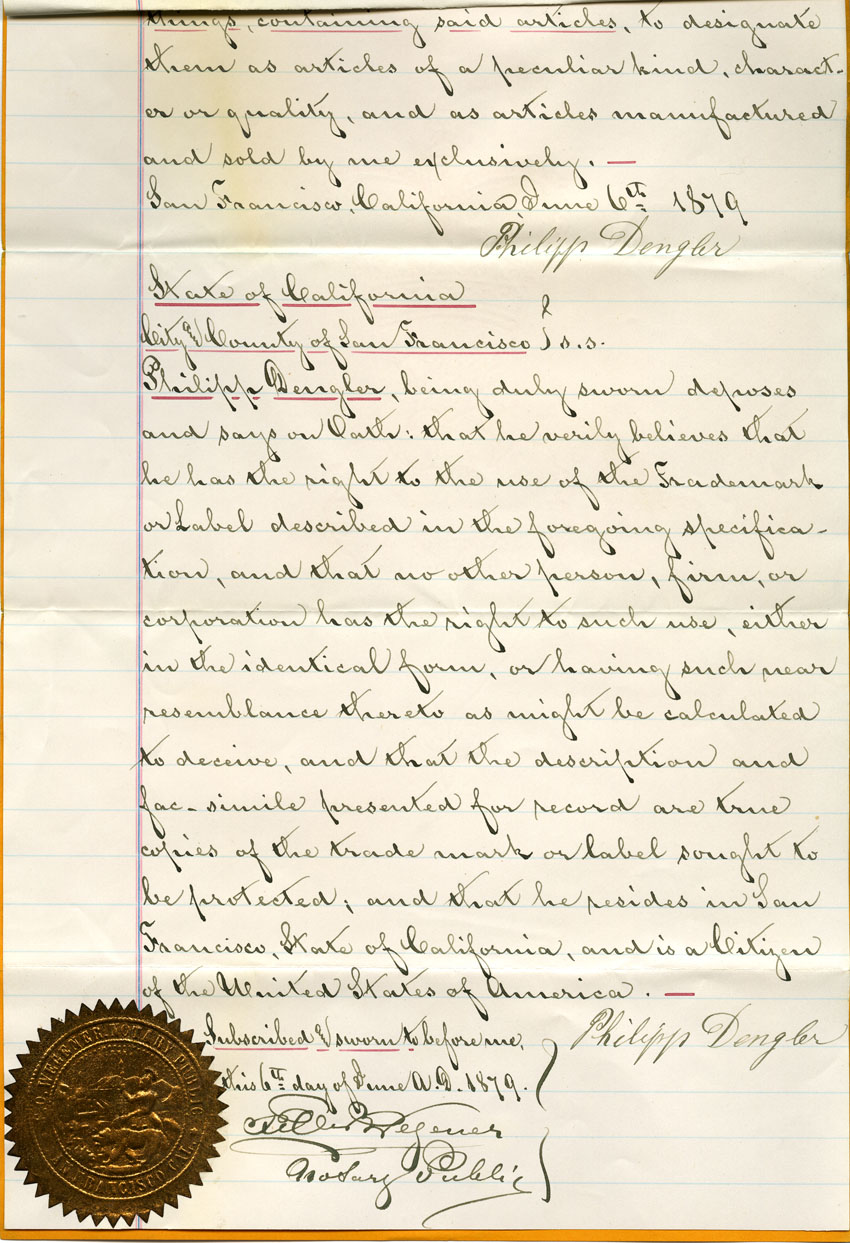 things, containing said articles, to designate
them as articles of a peculiar kind, charact-
er or quality, and as articles manufactured
and sold by me exclusively. —
San Francisco, California, June 6th 1879
Philipp Dengler
State of California
City & County of San Francisco } s.s.
Philipp Dengler, being duly sworn deposes
and says on Oath: that he verily believes that
he has the right to the use of the Trademark
or Label described in the foregoing specifica-
tion, and that no other person, firm, or
corporation has the right to such use, either
in the identical form, or having such near
resemblance thereto as might be calculated
to deceive, and that the description and
fac-simile presented for record are true
copies of the trade mark or label sought to
be protected; and that he resides in San
Francisco, State of California, and is a Citizen
of the United States of America. —
Subscribed & sworn to before me,
this 6th day of June A.D. 1879.
Philipp Dengler
Wegener
Notary Public
WEGENER NOTARY PUBLIC
SAN FRANCISCO CAL.